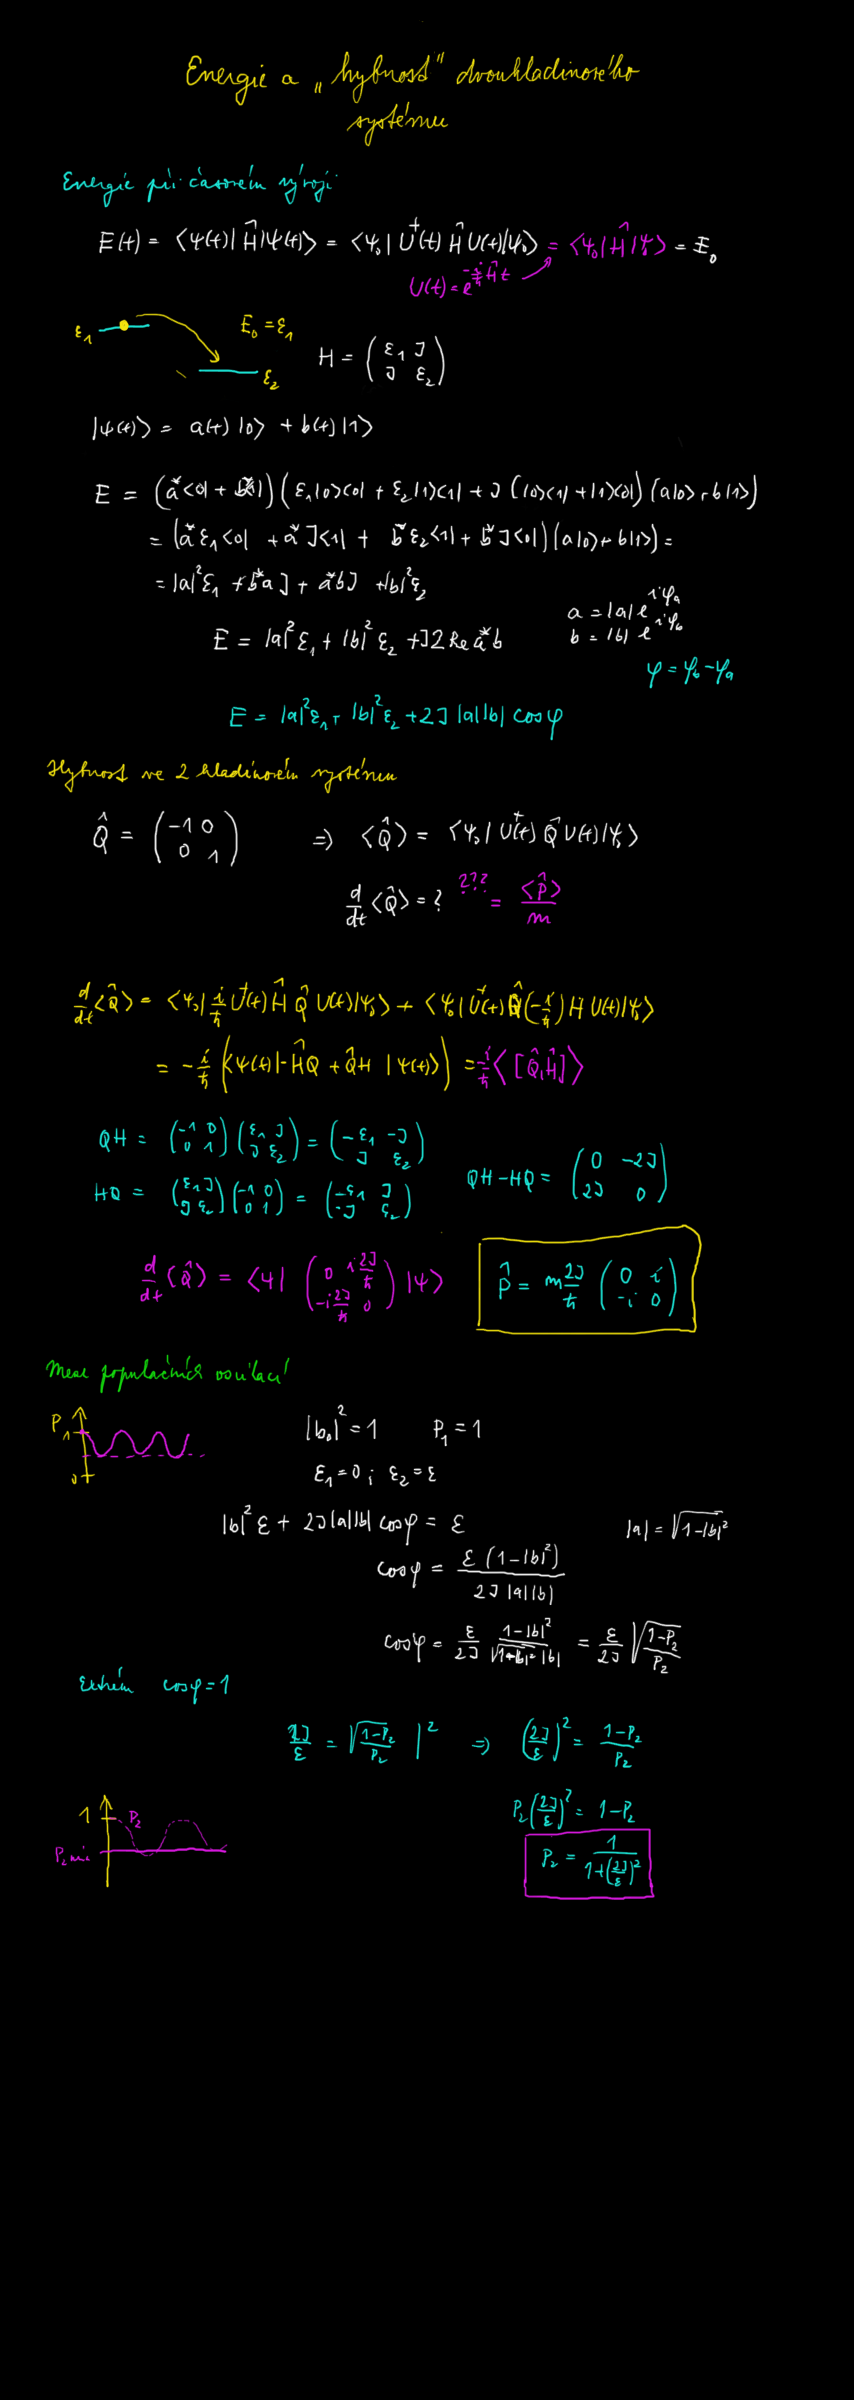 Energie a „hybnost" dvouhladinového
systému
Energie při časovém vývoji
E(t) = ⟨ψ(t)| Ĥ |ψ(t)⟩ = ⟨ψ₀| U⁺(t) Ĥ U(t)|ψ₀⟩ = ⟨ψ₀| Ĥ |ψ₀⟩ = E₀
U(t) = e^{-i/ħ Ĥt}
ε₁ E₀ = ε₁ ε₂ H = (ε₁ J; J ε₂)
|ψ(t)⟩ = a(t) |0⟩ + b(t) |1⟩
E = (a*⟨0| + b*⟨1|) (ε₁|0⟩⟨0| + ε₂|1⟩⟨1| + J (|0⟩⟨1| + |1⟩⟨0|) (a|0⟩ + b|1⟩)
= (a*ε₁⟨0| + a*J⟨1| + b*ε₂⟨1| + b*J⟨0|) (a|0⟩ + b|1⟩) =
= |a|²ε₁ + b*aJ + a*bJ + |b|²ε₂
a = |a| e^{iφa}
b = |b| e^{iφb}
E = |a|²ε₁ + |b|²ε₂ + J2 Re a*b
φ = φb - φa
E = |a|²ε₁ + |b|²ε₂ + 2J |a||b| cosφ
Hybnost ve 2 hladinovém systému
Q̂ = (-1 0; 0 1) ⇒ ⟨Q̂⟩ = ⟨ψ₀| U⁺(t) Q̂ U(t)|ψ₀⟩
d/dt ⟨Q̂⟩ = ? ??? = ⟨P̂⟩/m
d/dt ⟨Q̂⟩ = ⟨ψ₀| i/ħ U⁺(t) Ĥ Q̂ U(t)|ψ₀⟩ + ⟨ψ₀| U⁺(t) Q̂ (-i/ħ) H U(t)|ψ₀⟩
= -i/ħ (⟨ψ(t)| -ĤQ + Q̂H |ψ(t)⟩) = -i/ħ ⟨[Q̂,Ĥ]⟩
QH = (-1 0; 0 1) (ε₁ J; J ε₂) = (-ε₁ -J; J ε₂)
HQ = (ε₁ J; J ε₂) (-1 0; 0 1) = (-ε₁ J; -J ε₂) QH - HQ = (0 -2J; 2J 0)
d/dt ⟨Q̂⟩ = ⟨ψ| (0 i2J/ħ; -i2J/ħ 0) |ψ⟩ P̂ = m 2J/ħ (0 i; -i 0)
Meze populačních oscilací
P 1 0
|b₀|² = 1 P₁ = 1
ε₁ = 0 ; ε₂ = ε
|b|²ε + 2J|a||b| cosφ = ε |a| = √(1-|b|²)
cosφ = ε(1-|b|²) / 2J|a||b|
cosφ = ε/2J (1-|b|²)/(√(1-|b|²) |b|) = ε/2J √((1-P₂)/P₂)
Extrém cosφ = 1
2J/ε = √((1-P₂)/P₂) |² ⇒ (2J/ε)² = (1-P₂)/P₂
1 P₂
P₂ min
P₂(2J/ε)² = 1-P₂
P₂ = 1/(1+(2J/ε)²)